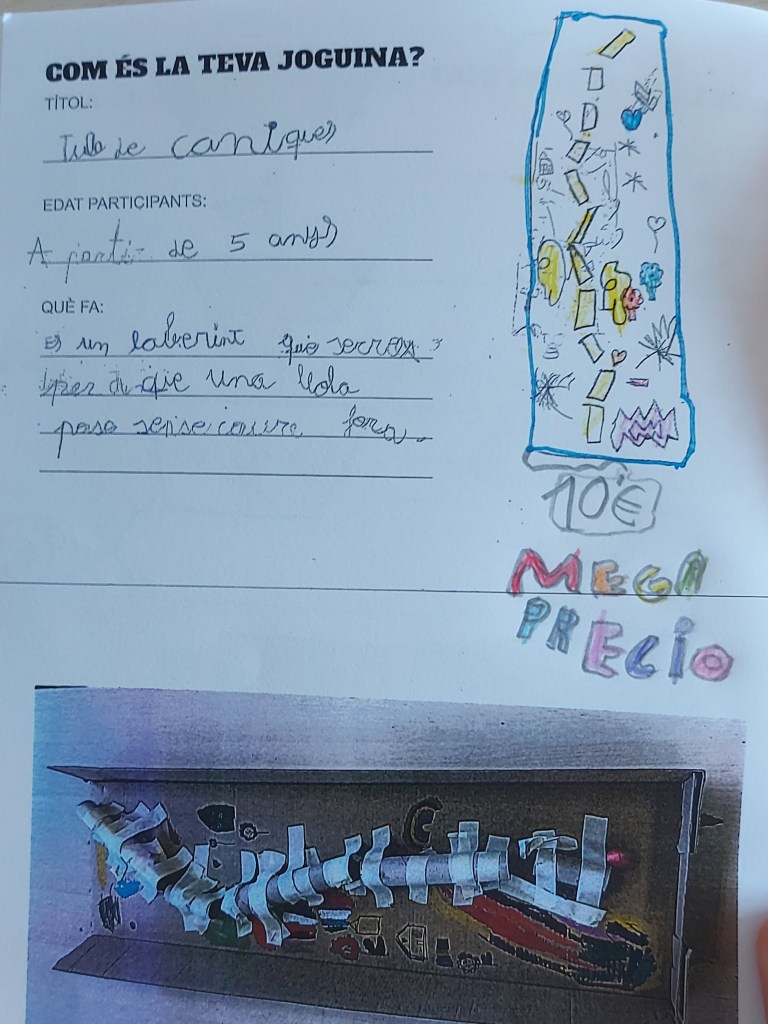 COM ÉS LA TEVA JOGUINA?
TÍTOL:
Tubo de caniques
EDAT PARTICIPANTS:
A partir de 5 anys
QUÈ FA:
es un laberint que
que una bola
pasa sense caure fora.
10€
MEGA
PRECIO